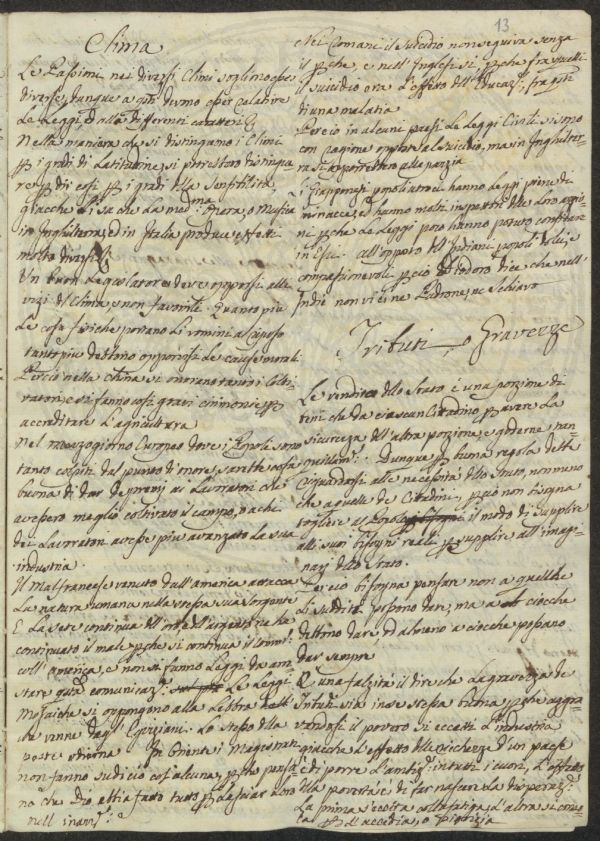 13
Clima
Le Passioni nei diversi Climi sogliono esser
diverse, dunque a questi devono esser relative
Le Leggi, ed alli differenti caratteri
Nella maniera che si distinguono i Climi
i gradi di Latitudine, si potrebbero distinguere
re così i gradi della sensibilità
giacche si sa che la medma Opera, o Musica
in Inghilterra, ed in Italia produce effetti
molto diversi
Un buon Legislatore deve opporsi alli
vizi del Clima, e non favorirli. Quanto più
Le cose fisiche portano Li uomini al riposo
tanto più debbono opporsi Le cause morali
Perciò nella China si onorano tanto i Colti-
vatori, e si fanno così gravi cirimonie
accreditare L'agricultura
Nel mezzogiorno Europeo dove i Popoli sono
tanto colpiti dal punto di onore, sarebbe cosa
buona di dar de premj ai Lavoratori che
avessero meglio coltivato il campo, o a chi
dei Lavoratori avesse più avanzato La sua
industria
Il Malfrancese venuto dall'America attacca
La natura umana nella stessa sua sorgente
E La sete continua dell'oro, e dell'argento ne ha
continuato il male perche si continua il comm:
coll'America, e non si fanno Leggi da arre-
stare questa comunicaz: Le Leggi
Mosaiche si oppongono alla Lebbra
che venne dagl'Egiziani. Lo stesso della
peste odierna In Oriente i Magistrati
non fanno sudicio cos'alcuna, perche pensa-
no che Dio abbia fatto tutto
nell'inanz:
Nei Romani il Suicidio non seguiva senza
il perche, e nell'Inglesi si, perche fra quelli
il suicidio era L'effetto dell'Educaz:, fra questi
di una malatia
Perciò in alcuni paesi Le Leggi Civili si sono
con ragione opposte al suicidio, ma in Inghilter-
ra si opporrebbero alla pazzia
i Giapponesi popoli atroci hanno Leggi piene di
minacce, ed hanno molti sospetti delle Loro azio-
ni perche Le Leggi poco hanno potuto confidare
in essi. All'opposto dell'Indiani popoli dolci, e
compassionevoli, perciò Diodoro dice che nell'
Indie non vi è ne Padrone, ne Schiavo
Tributi, o Gravezze
Le rendite dello Stato è una porzione di
beni che da ciascun Cittadino avere La
sicurezza dell'altra porzione, e goderne tran-
quillam: Dunque buona regola debb
riguardarsi alle necessità dello Stato, non meno
che a quelle de Cittadini, perciò non bisogna
togliere al Popolo il modo di supplire
alli suoi bisogni reali supplire all'imagi-
narj dello Stato.
Perciò bisogna pensare non a quel che
Li sudditi possono dare, ma a ciocche
debbono dare, ed almeno a ciocche possano
dar sempre
È una falsità il dire che La gravezza de
Tributi sia in se stessa buona, perche aggra-
vandosi il povero si eccetti L'industria
giacche L'effetto delle ricchezze d'un paese
è di porre L'ambiz: in tutti i cuori, L'effetto
della povertà è di far nascere La disperaz:
La prima s'eccita colla fatiga, L'altra si conso-
la coll'accidia, o pigrizia